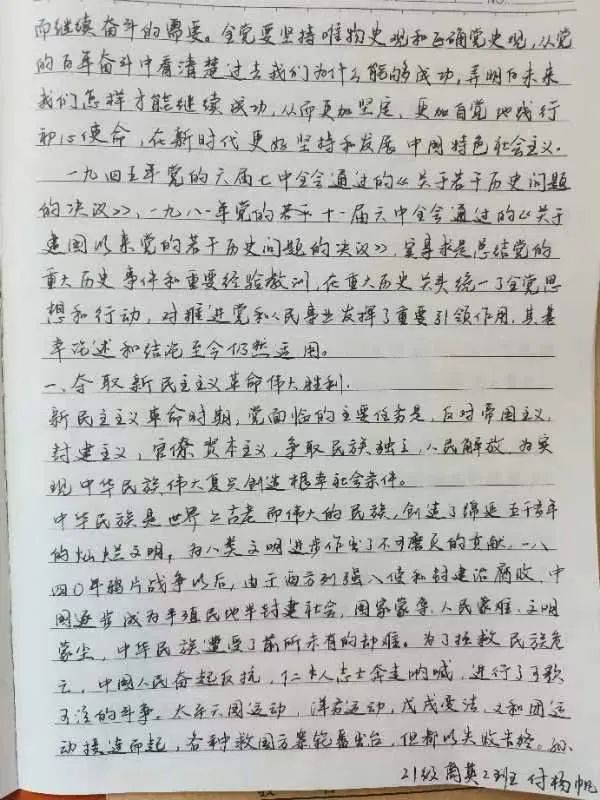 而继续奋斗的需要。全党要坚持唯物史观和正确党史观，从党
的百年奋斗中看清楚过去我们为什么能够成功，弄明白未来
我们怎样才能继续成功，从而更加坚定、更加自觉地践行
初心使命，在新时代更好坚持和发展中国特色社会主义.
一九四五年党的六届七中全会通过的《关于若干历史问题
的决议》，一九八一年党的十一届六中全会通过的《关于
建国以来党的若干历史问题的决议》，实事求是总结党的
重大历史事件和重要经验教训，在重大历史关头统一了全党思
想和行动，对推进党和人民事业发挥了重要引领作用，其基
本论述和结论至今仍然适用。
一、夺取新民主主义革命伟大胜利.
新民主主义革命时期，党面临的主要任务是，反对帝国主义、
封建主义、官僚资本主义，争取民族独立、人民解放，为实
现中华民族伟大复兴创造根本社会条件。
中华民族是世界上古老而伟大的民族，创造了绵延五千多年
的灿烂文明，为人类文明进步作出了不可磨灭的贡献.一八
四〇年鸦片战争以后，由于西方列强入侵和封建统治腐败，中
国逐步成为半殖民地半封建社会，国家蒙辱、人民蒙难、文明
蒙尘，中华民族遭受了前所未有的劫难。为了拯救民族危
亡，中国人民奋起反抗，仁人志士奔走呐喊，进行了可歌
可泣的斗争。太平天国运动、洋务运动、戊戌变法、义和团运
动接连而起，各种救国方案轮番出台，但都以失败告终。
21级商英2班 付杨帆